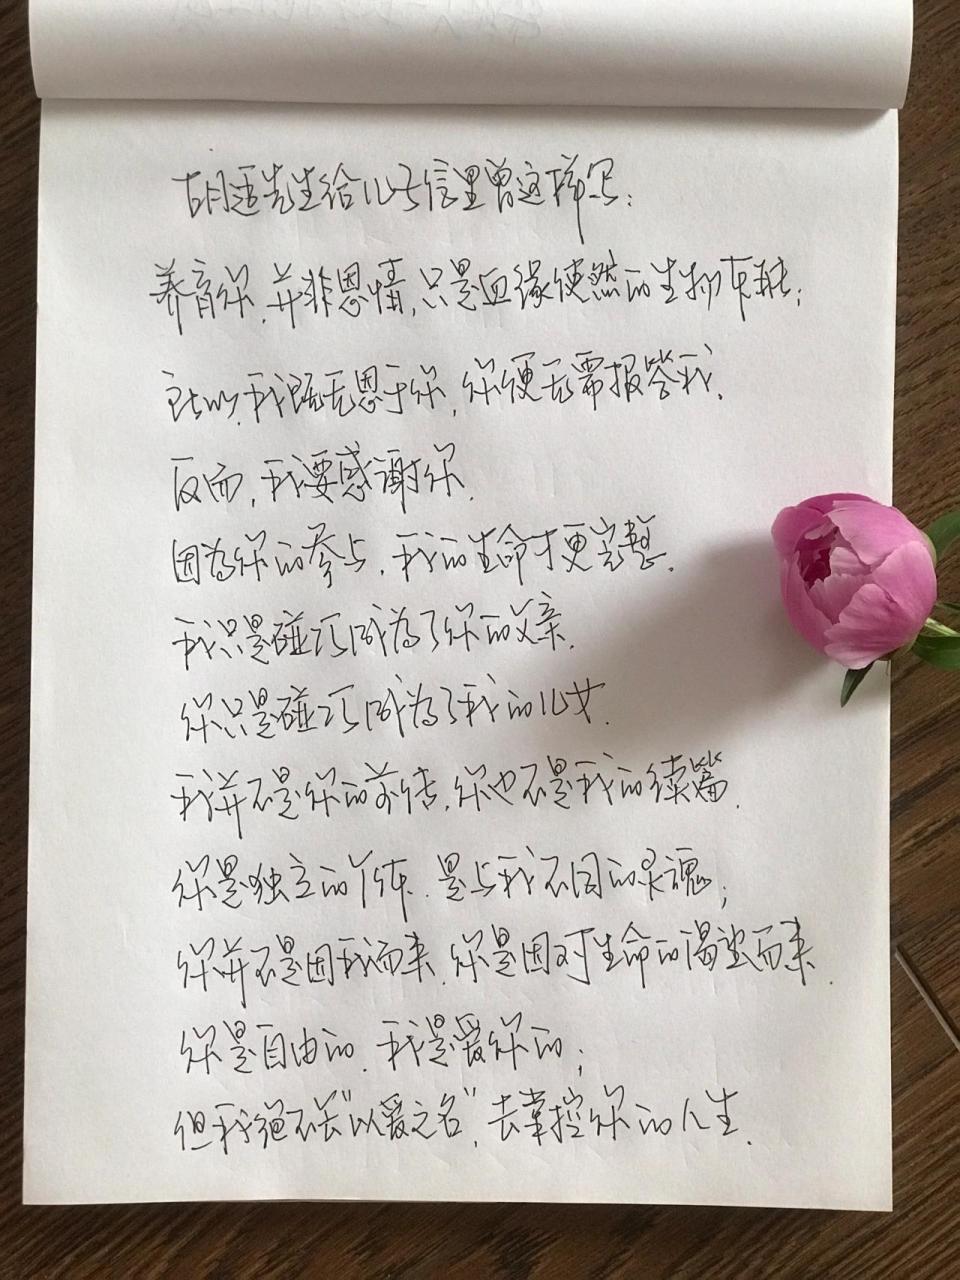 胡适先生给儿子信里曾这样写:
养育你,并非恩情,只是血缘使然的生物本能;
所以,我既无恩于你,你便无需报答我.
反而,我要感谢你.
因为你的参与,我的生命才更完整.
我只是碰巧成为了你的父亲.
你只是碰巧成为了我的儿女.
我并不是你的前传,你也不是我的续篇.
你是独立的个体.是与我不同的灵魂;
你并不是因我而来.你是因对生命的渴望而来.
你是自由的.我是爱你的;
但我绝不会"以爱之名",去掌控你的人生.